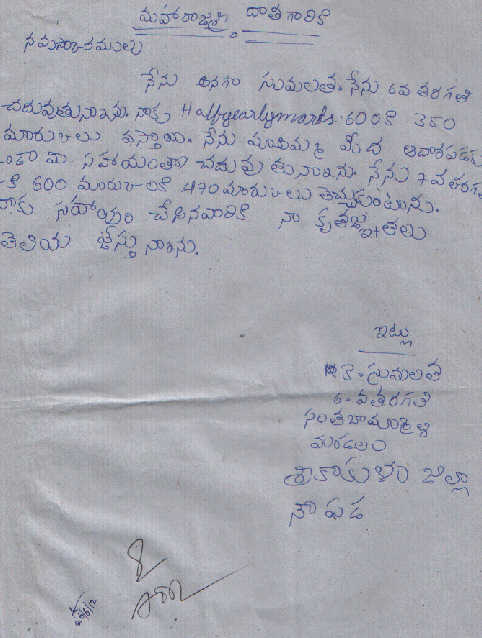 మహారాజశ్రీ దాత గారికి
నమస్కారములు
నేను బనగం సుమలత. నేను 6వ తరగతి
చదువుతున్నాను నాకు Halfyearlymarks. 600కి 350
మారుకులు వస్తాయి. నేను మీద ఆధారపడకు
డా మీ సహాయంతో చదువు తున్నాను. నేను 7వ తరగ
కి 600 మారుకులకి 470మారుకులు తెచ్చుకుంటును.
నాకు సహాయం చేసినవారికి నా కృతజ్ఞతలు
తెలియ జేస్తు న్నాను.
ఇట్లు
B. సుమలత
6- వతరగతి
సంతబొమ్మాళి
మండలం
శ్రీకాకుళం జిల్లా
నౌపడ